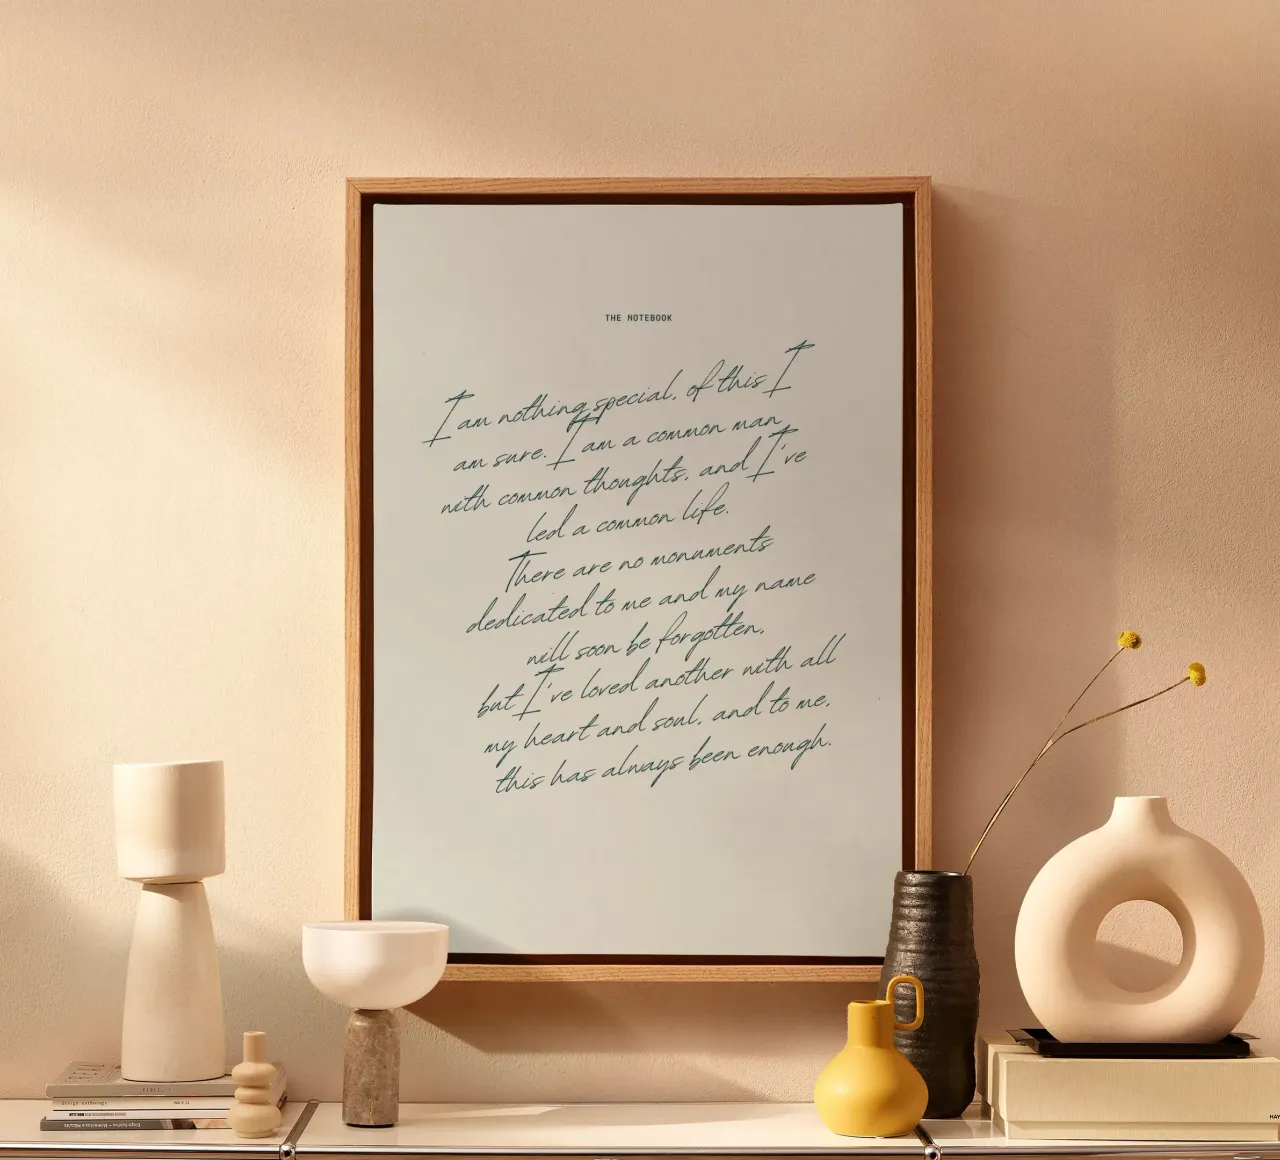 THE NOTEBOOK
I am nothing special, of this I
am sure. I am a common man
with common thoughts, and I've
led a common life.
There are no monuments
dedicated to me and my name
will soon be forgotten,
but I've loved another with all
my heart and soul, and to me,
this has always been enough.
design anthology
HAY